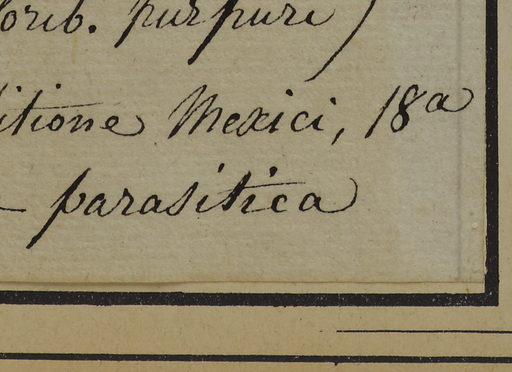 lorib. purpurei)
litione Mexici, 18a
— parasitica